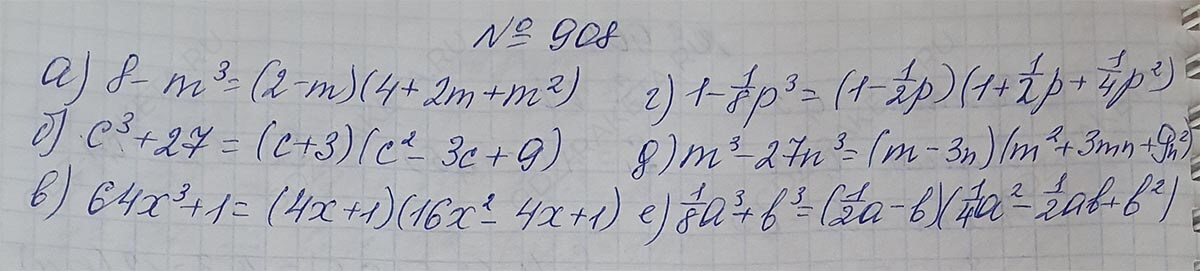 № 908
а) 8 - m³ = (2-m)(4+2m+m²)
б) c³+27 = (c+3)(c²-3c+9)
в) 64x³+1 = (4x+1)(16x²-4x+1)
г) 1-1/8p³ = (1-1/2p)(1+1/2p+1/4p²)
д) m³-27n³ = (m-3n)(m²+3mn+9n²)
е) 1/8a³+b³ = (1/2a-b)(1/4a²-1/2ab+b²)